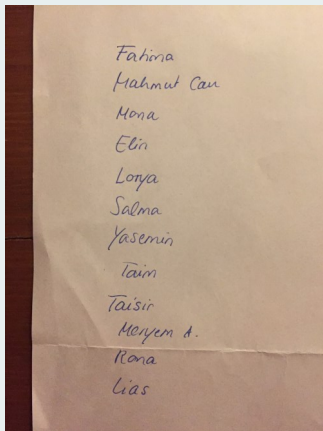 Fatima
Mahmut Can
Mona
Elin
Lorya
Salma
Yasemin
Taim
Taisir
Meryem A.
Rana
Lias